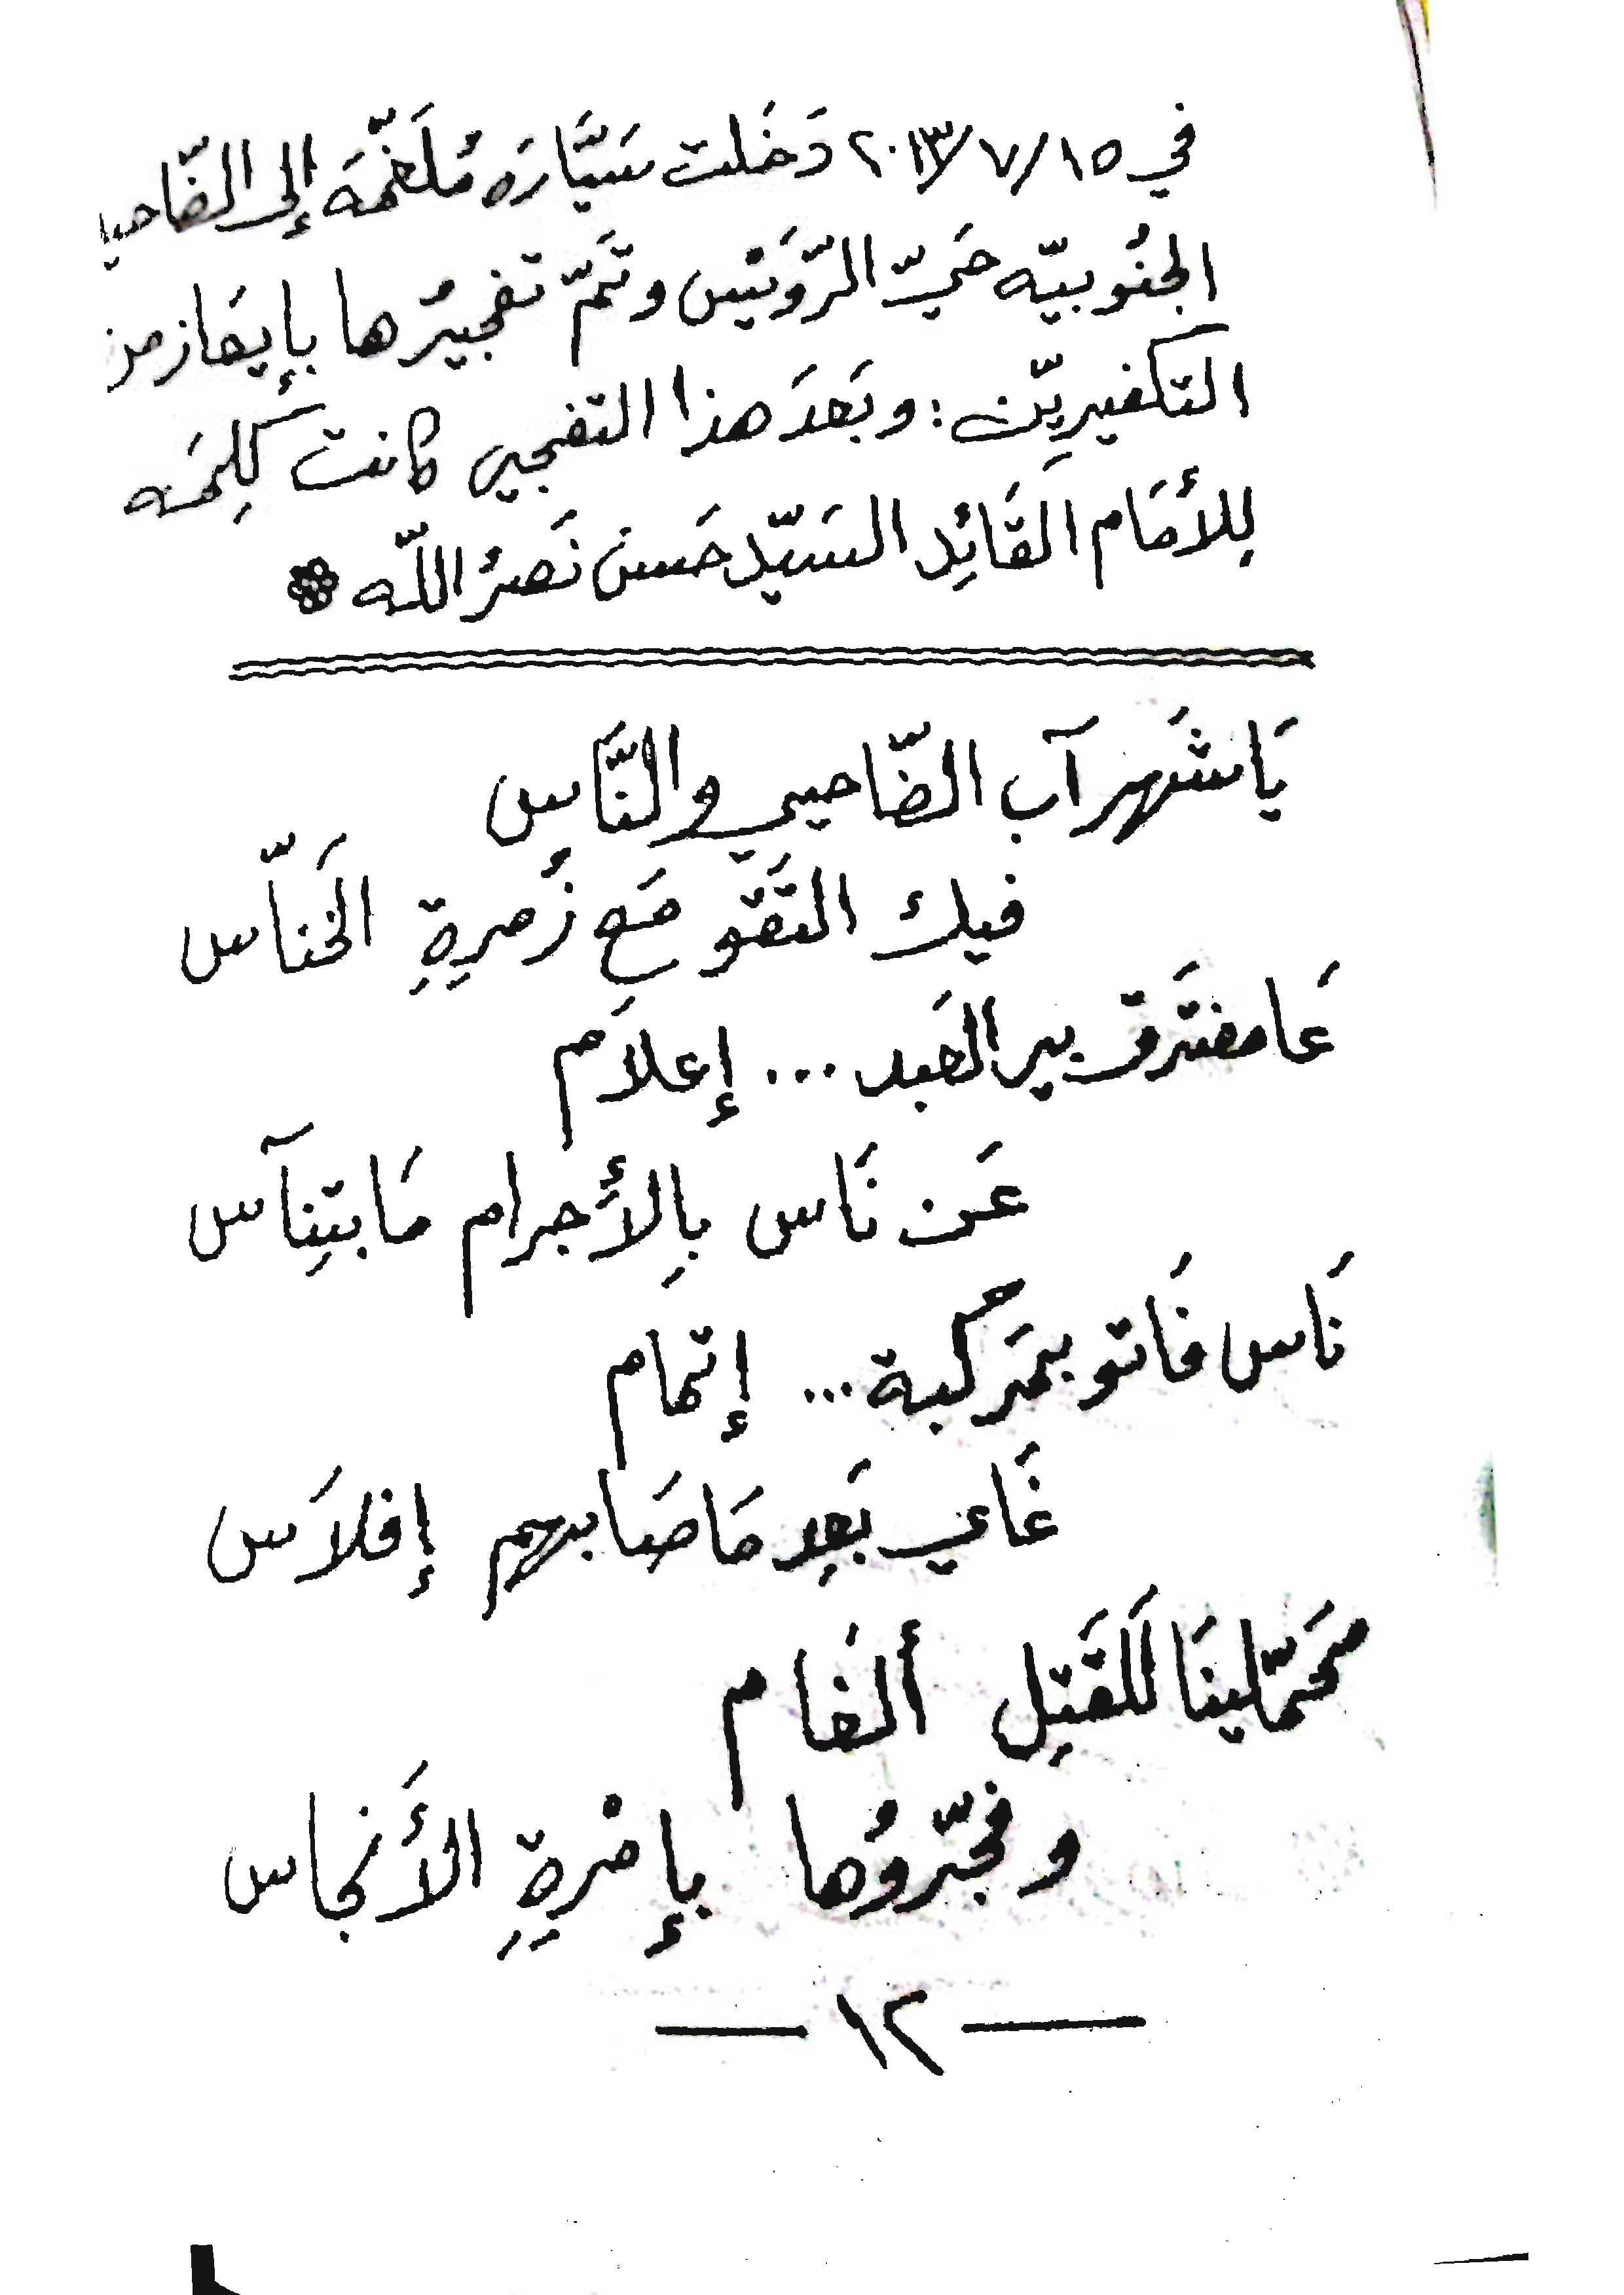 في ١٥/٧/٢٠١٣ دَخَلت سَيَّارَه مُلَغَّمَه إلى الضَّاحيـ
الجنُوبيّه حَيّ الرّوَيْس وتَمّ تفجيرُها بإيعَاز من
التكفيريّن : وبَعدَ هذا التفجير كانت كَلِمَه
لِلأمَام القَائِد السَيّد حَسن نَصرُ اللّه
يَا شَهر آب الضَّاحيي والنَّاس
فيك التَقَو مَع زُمرِةِ الخَنَّاس
عَا مفتَرق بير العَبد ... إعلاَم
عَن نَاس بِالأَجرام مَا بتِنآس
نَاس فَاتو بمَركبة ... إتمام
غَاي بَعِد مَا صَابهم إفلاَس
محَمّلينَا لَلقَتِل ألغَام
وفجّروُها بإمْرِةِ الأَنجاس
— ١٢ —